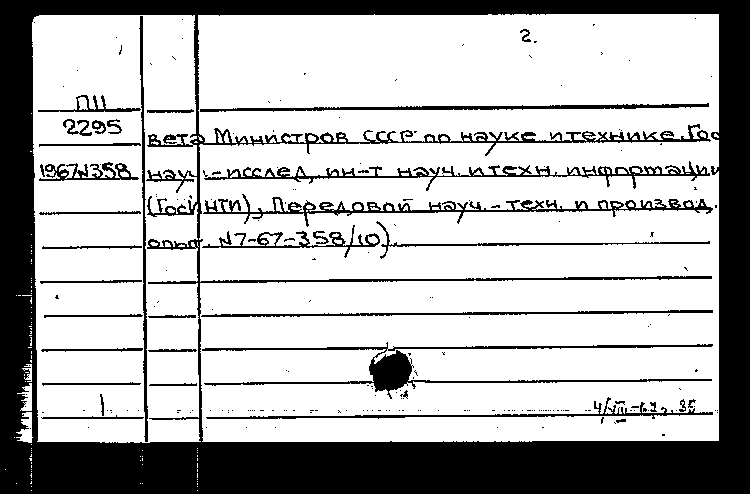 2.
П11
2295
вета Министров СССР по науке и технике. Гос
1967N358 науч.-исслед. ин-т науч. и техн. информации
(ГосИНТИ), Передовой науч.-техн. и производ.
опыт. N7-67-358/10).
4/VIII-67г.